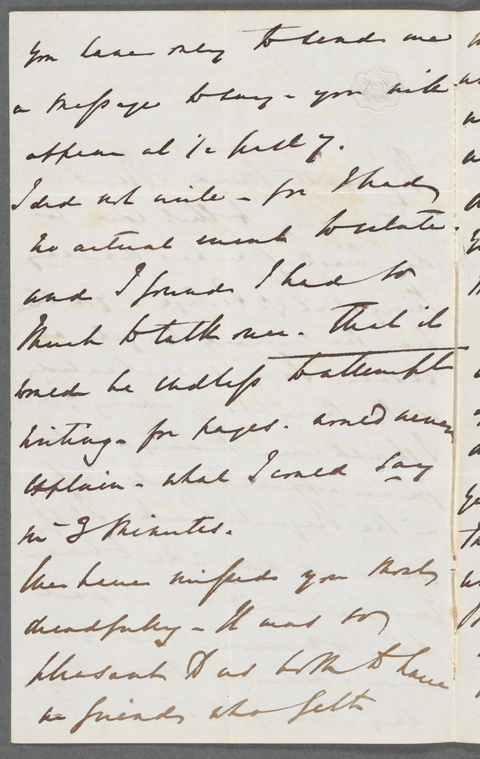 You have only to send me
a message to say - you will
appear at ½ past 7.
I did not write - for I had
no actual event to relate.
and I found I had so
Much to talk over. that it
would be endless to attempt
writing - for pages. would never
explain - what I could say
in 3 Minutes.
We have missed you Most
dreadfully - It was so
pleasant to us both to have
a friend who felt